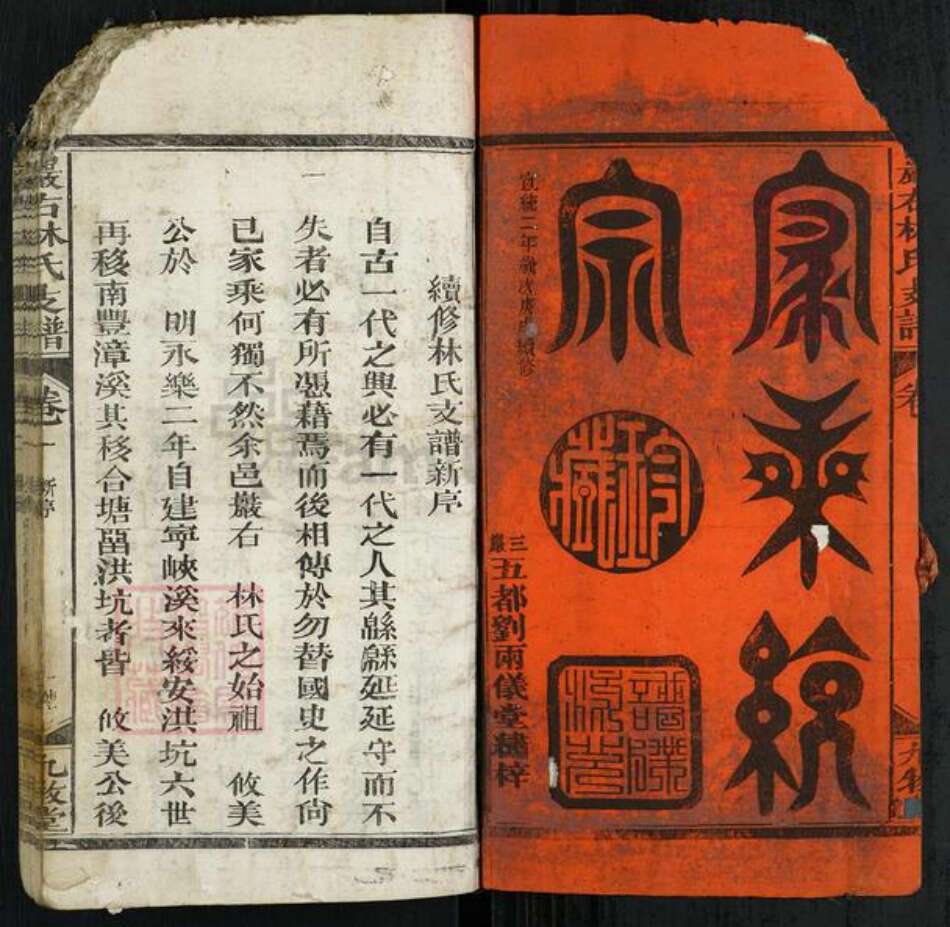 家乘統
宗
宣統二年歲次庚戌續修
珍藏
三巖五都劉兩儀堂繡梓
續修林氏支譜新序
自古一代之興必有一代之人其緜緜延延守而不
失者必有所憑藉焉而後相傳於勿替國史之作尙
已家乘何獨不然余邑巖右 林氏之始祖 攸美
公於 明永樂二年自建寧峽溪來綏安洪坑六世
再移南豐漳溪其移合塘畐洪坑者皆 攸美公後
巖右林氏支譜
卷一
新序